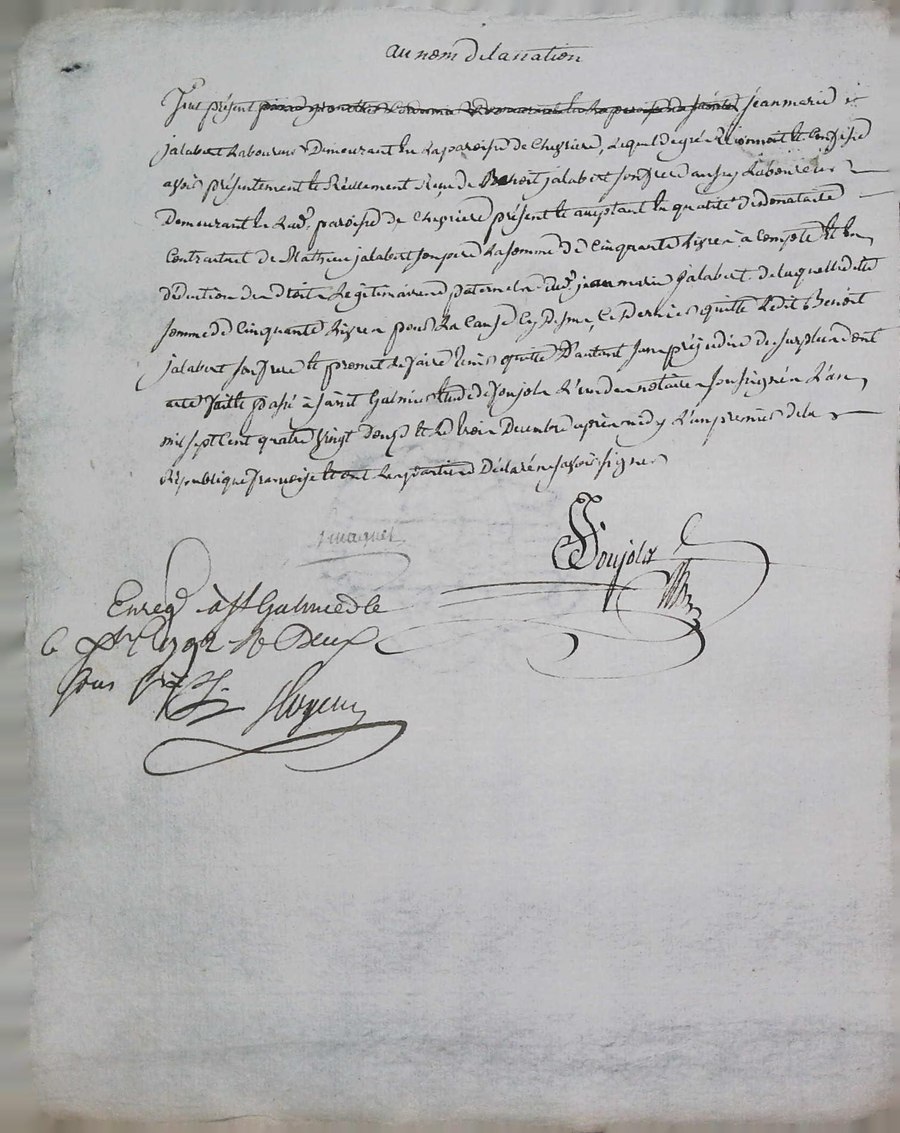 au nom de la nation
fut présent jean marie
jalabert Laboureur Demeurant en La paroisse de Chevriere, Lequel de gré Reconnoit et Confesse
avoir présentement et Réellement Reçu de Benoit jalabert son frere aussy Laboureur
Demeurant en Lad. paroisse de Chevriere présent et acceptant en qualité de donataire
Contractuel de Mathieu jalabert son pere La somme de Cinquante Livres à Compte et en
déduction des droits Legitimaires paternels dud. jean marie jalabert de laquelle dette
somme de Cinquante Livres pour La Cause Cy Dessus, Ce Dernier quitte Ledit Benoit
jalabert son frere et promet Le faire tenir quitte D'autant sans préjudice du surplus dont
acte faitte passé à saint Galmier Etude de Poujola L'un des notaires soussignés L'an
mil sept Cent quatre vingt douze et Le trois Decembre après midy L'an premier de la
République françoise Les parties Déclaré ne savoir signer
Poujola
Enreg. à St Galmier le
6 Xbre 1792 R Deux
sous